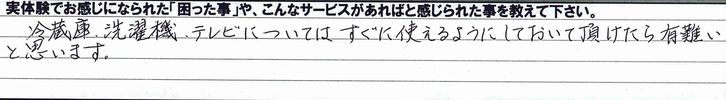 実体験でお感じになられた「困った事」や、こんなサービスがあればと感じられた事を教えて下さい。
冷蔵庫、洗濯機、テレビについては すぐに使えるようにしておいて頂けたら有難い
と思います。